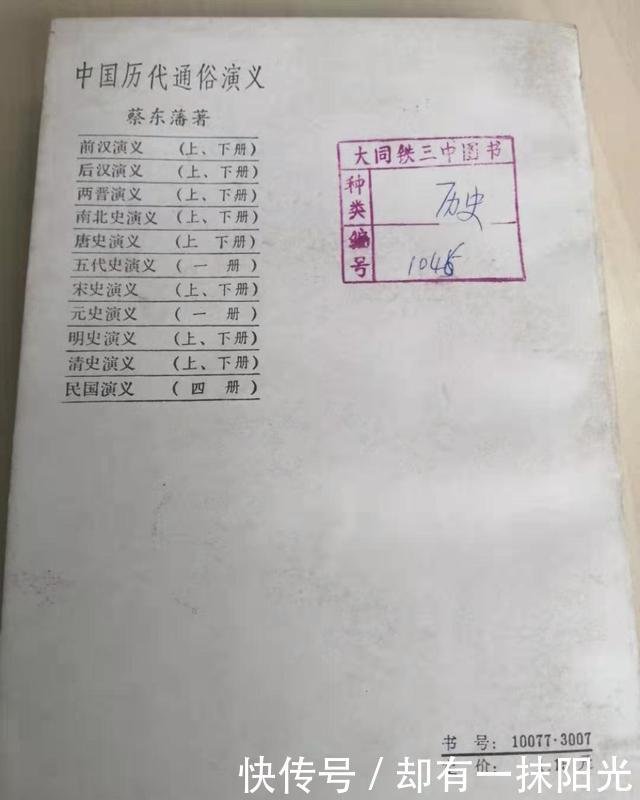 中国历代通俗演义
蔡东藩著
前汉演义 (上、下册)
后汉演义 (上、下册)
两晋演义 (上、下册)
南北史演义 (上、下册)
唐史演义 (上 下册)
五代史演义 (一 册)
宋史演义 (上、下册)
元史演义 (一 册)
明史演义 (上、下册)
清史演义 (上、下册)
民国演义 (四 册)
大同铁三中图书
种类 历史
编号
书 号: 10077·3007
定价:
快传号 / 却有一抹阳光